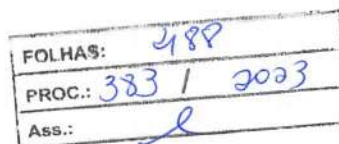 FOLHAS: 488
PROC.: 383 / 2023
Ass.: